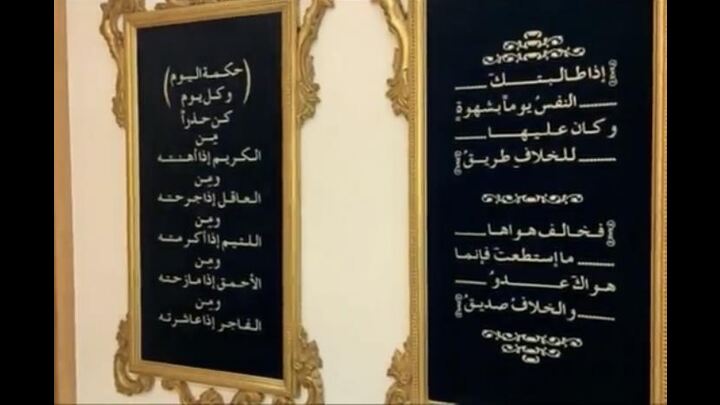 إذا طالبتك
النفسُ يوماً بشهوةٍ
وكان عليها
للخلافِ طريقُ
فخالف هواها
ما إستطعت فإنما
هواك عدوُ
والخلافُ صديقُ
(حكمة اليوم
وكل يوم)
كن حذراً
مِن
الكريم إذا أهنته
ومِن
العاقل إذا جرحته
ومِن
اللئيم إذا أكرمته
ومِن
الأحمق إذا مازحته
ومِن
الفاجر إذا عاشرته